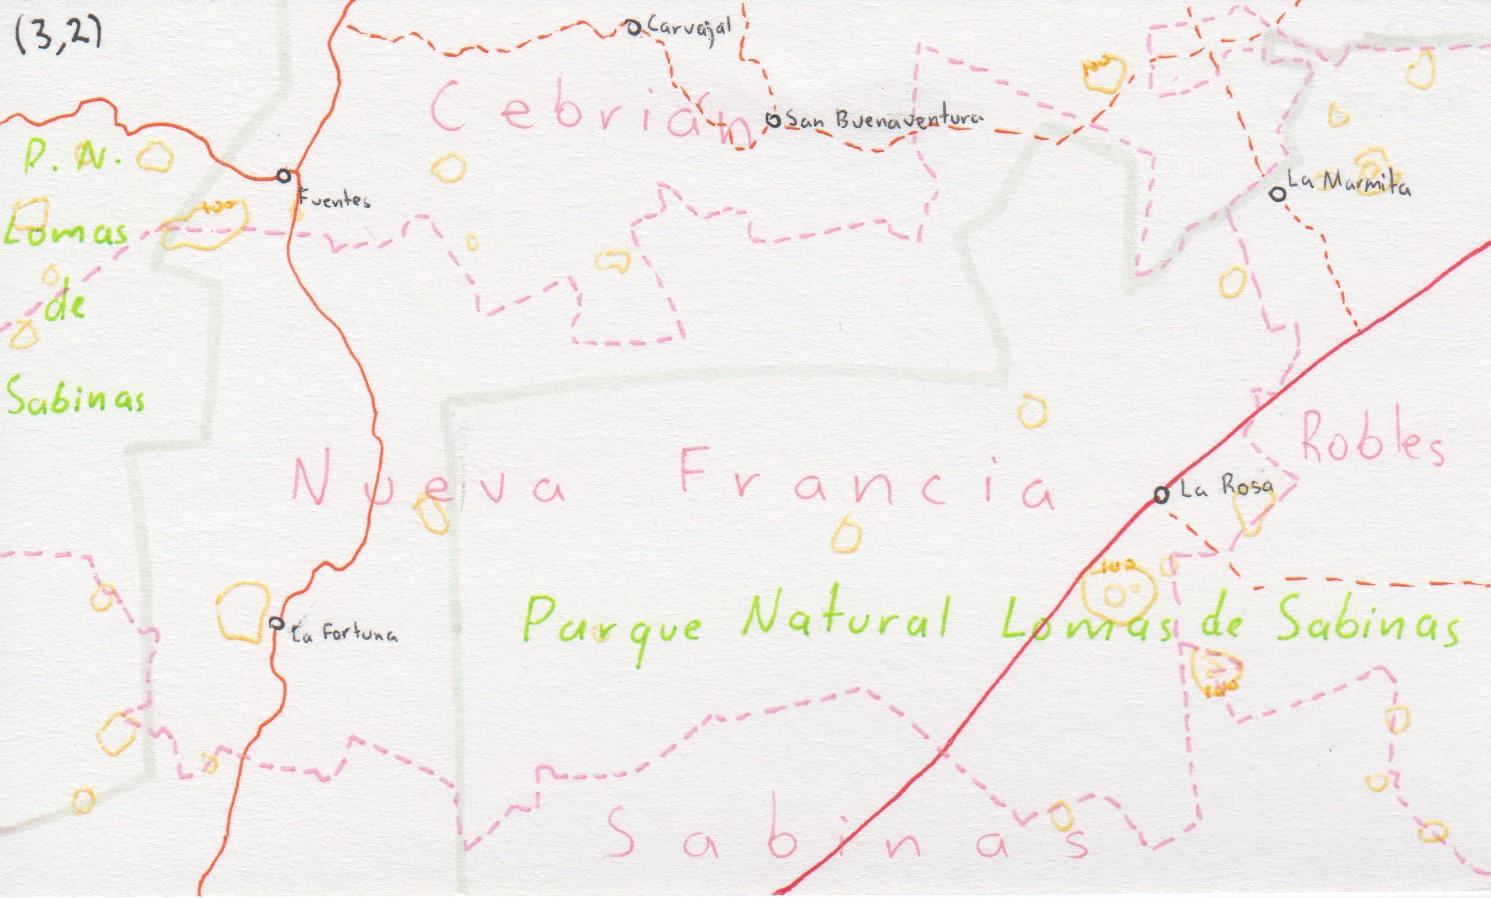 (3,2)
Carvajal
Cebrián
San Buenaventura
100
P. N.
Lomas
de
Sabinas
Fuentes
100
La Marmita
Nueva Francia
Robles
La Rosa
100
La Fortuna
Parque Natural Lomas de Sabinas
100
Sabinas